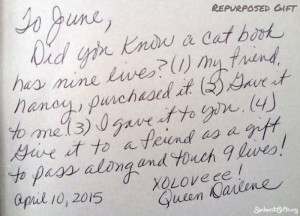 REPURPOSED GIFT
To June,
Did you know a cat book
has nine lives? (1) My friend,
Nancy, purchased it. (2) Gave it
to me. (3) I gave it to you. (4)
Give it to a friend as a gift
to pass along and touch 9 lives!
XOLOVEEE!
April 10, 2015 Queen Darlene